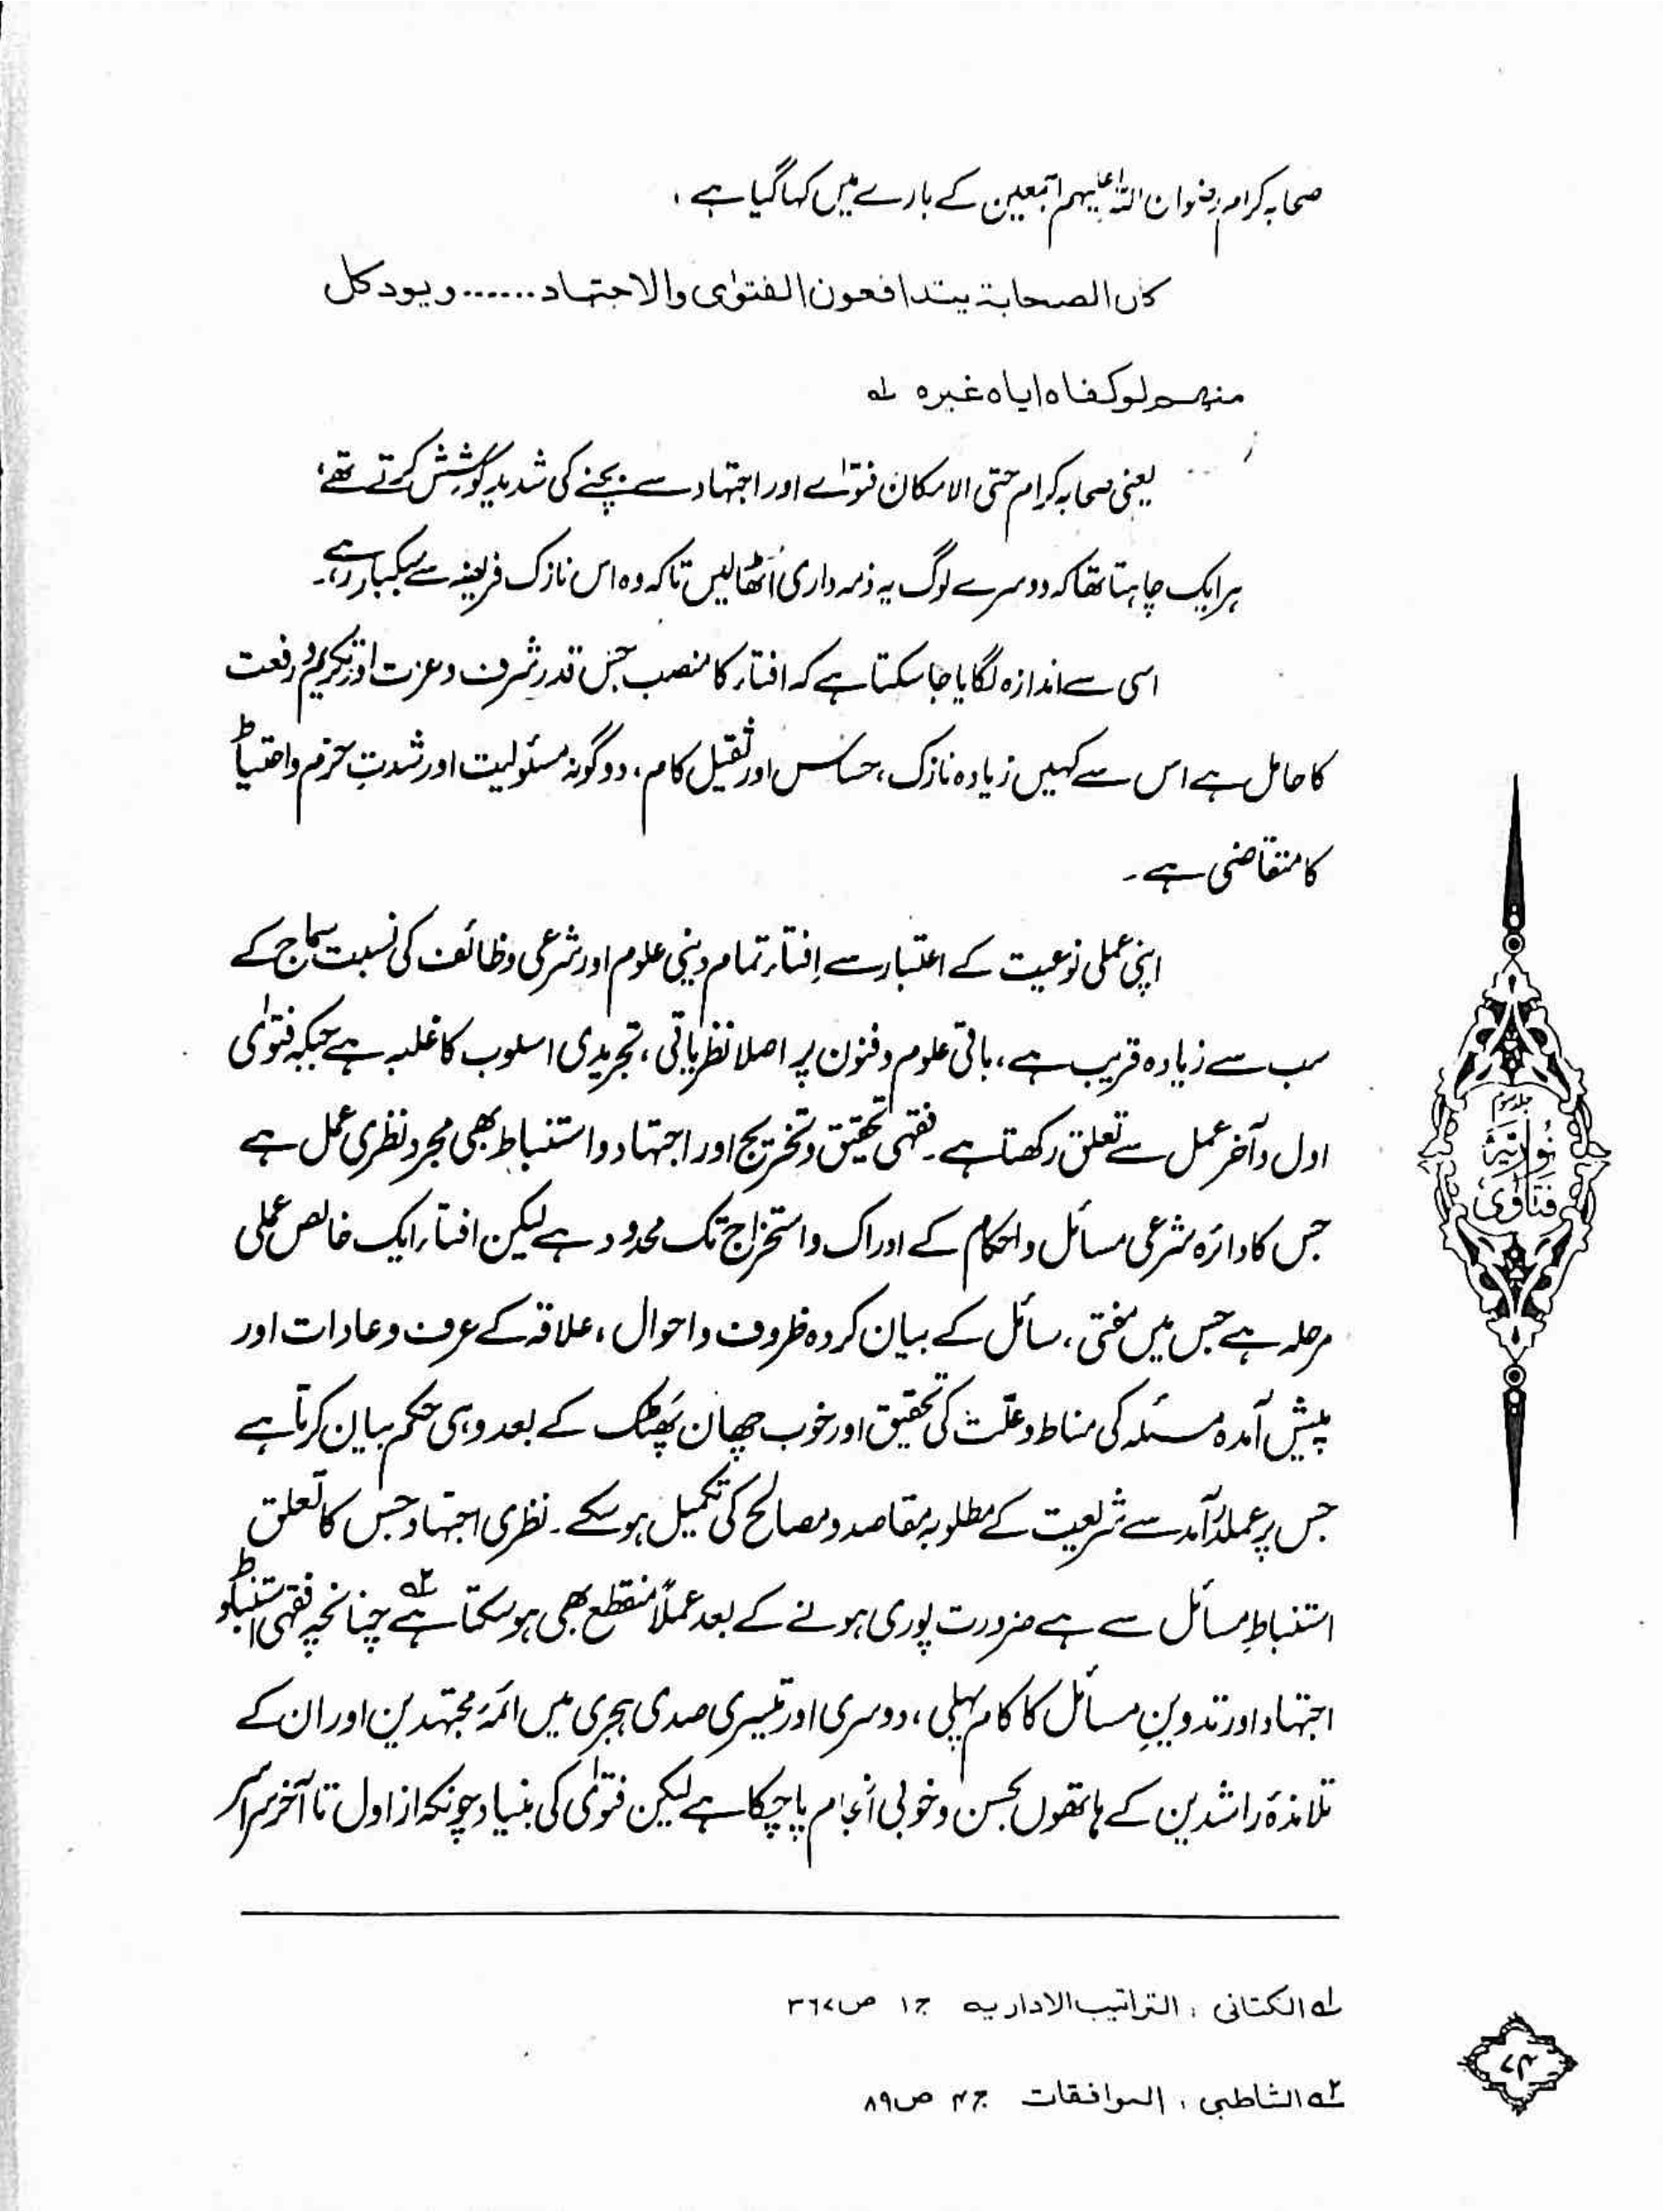 صحابہ کرام رضوان اللہ علیہم اجمعین کے بارے میں کہا گیا ہے ،
کان الصحابة يتدافعون الفتوٰی والاجتهاد ...... و يود كل
منهم لو كفاه اياه غيره ۱ه
یعنی صحابہ کرام حتی الامکان فتوٰے اور اجتہاد سے بچنے کی شدید کوشش کرتے تھے،
ہر ایک چاہتا تھا کہ دوسرے لوگ یہ ذمہ داری اُٹھا لیں تاکہ وہ اس نازک فریضہ سے سبکبار رہے۔
اسی سے اندازہ لگایا جا سکتا ہے کہ افتاء کا منصب جس قدر شرف و عزت اور تکریم و رفعت
کا حامل ہے اس سے کہیں زیادہ نازک، حساس اور ثقیل کام، دوگونہ مسئولیت اور شدتِ حزم و احتیاط
کا متقاضی ہے۔
اپنی عملی نوعیت کے اعتبار سے اِفتاء تمام دینی علوم اور شرعی وظائف کی نسبت سماج کے
سب سے زیادہ قریب ہے، باقی علوم و فنون پر اصلا نظریاتی، تجریدی اسلوب کا غلبہ ہے جبکہ فتوٰی
اول و آخر عمل سے تعلق رکھتا ہے۔ فقہی تحقیق و تخریج اور اجتہاد و استنباط بھی مجرد نظری عمل ہے
جس کا دائرہ شرعی مسائل و احکام کے ادراک و استخراج تک محدود ہے لیکن افتاء ایک خالص عملی
مرحلہ ہے جس میں مفتی، سائل کے بیان کردہ ظروف و احوال، علاقہ کے عرف و عادات اور
پیش آمدہ مسئلہ کی مناط و علّت کی تحقیق اور خوب چھان پَھٹک کے بعد وہی حکم بیان کرتا ہے
جس پر عملدرآمد سے شریعت کے مطلوبہ مقاصد و مصالح کی تکمیل ہو سکے۔ نظری اجتہاد جس کا تعلق
استنباطِ مسائل سے ہے ضرورت پوری ہونے کے بعد عملاً منقطع بھی ہو سکتا ہے ۲ه چنانچہ فقہی استنباط و
اجتہاد اور تدوینِ مسائل کا کام پہلی، دوسری اور تیسری صدی ہجری میں ائمۂ مجتہدین اور ان کے
تلامذۂ راشدین کے ہاتھوں بحسن و خوبی انجام پا چکا ہے لیکن فتوٰی کی بنیاد چونکہ از اول تا آخر سراسر
۱ه الکتانی ، التراتیب الاداریه ج۱ ص۳۶۷
۲ه الشاطبی ، الموافقات ج۴ ص۸۹
فتاوٰی
نوریہ
جلد سوم
۷۴